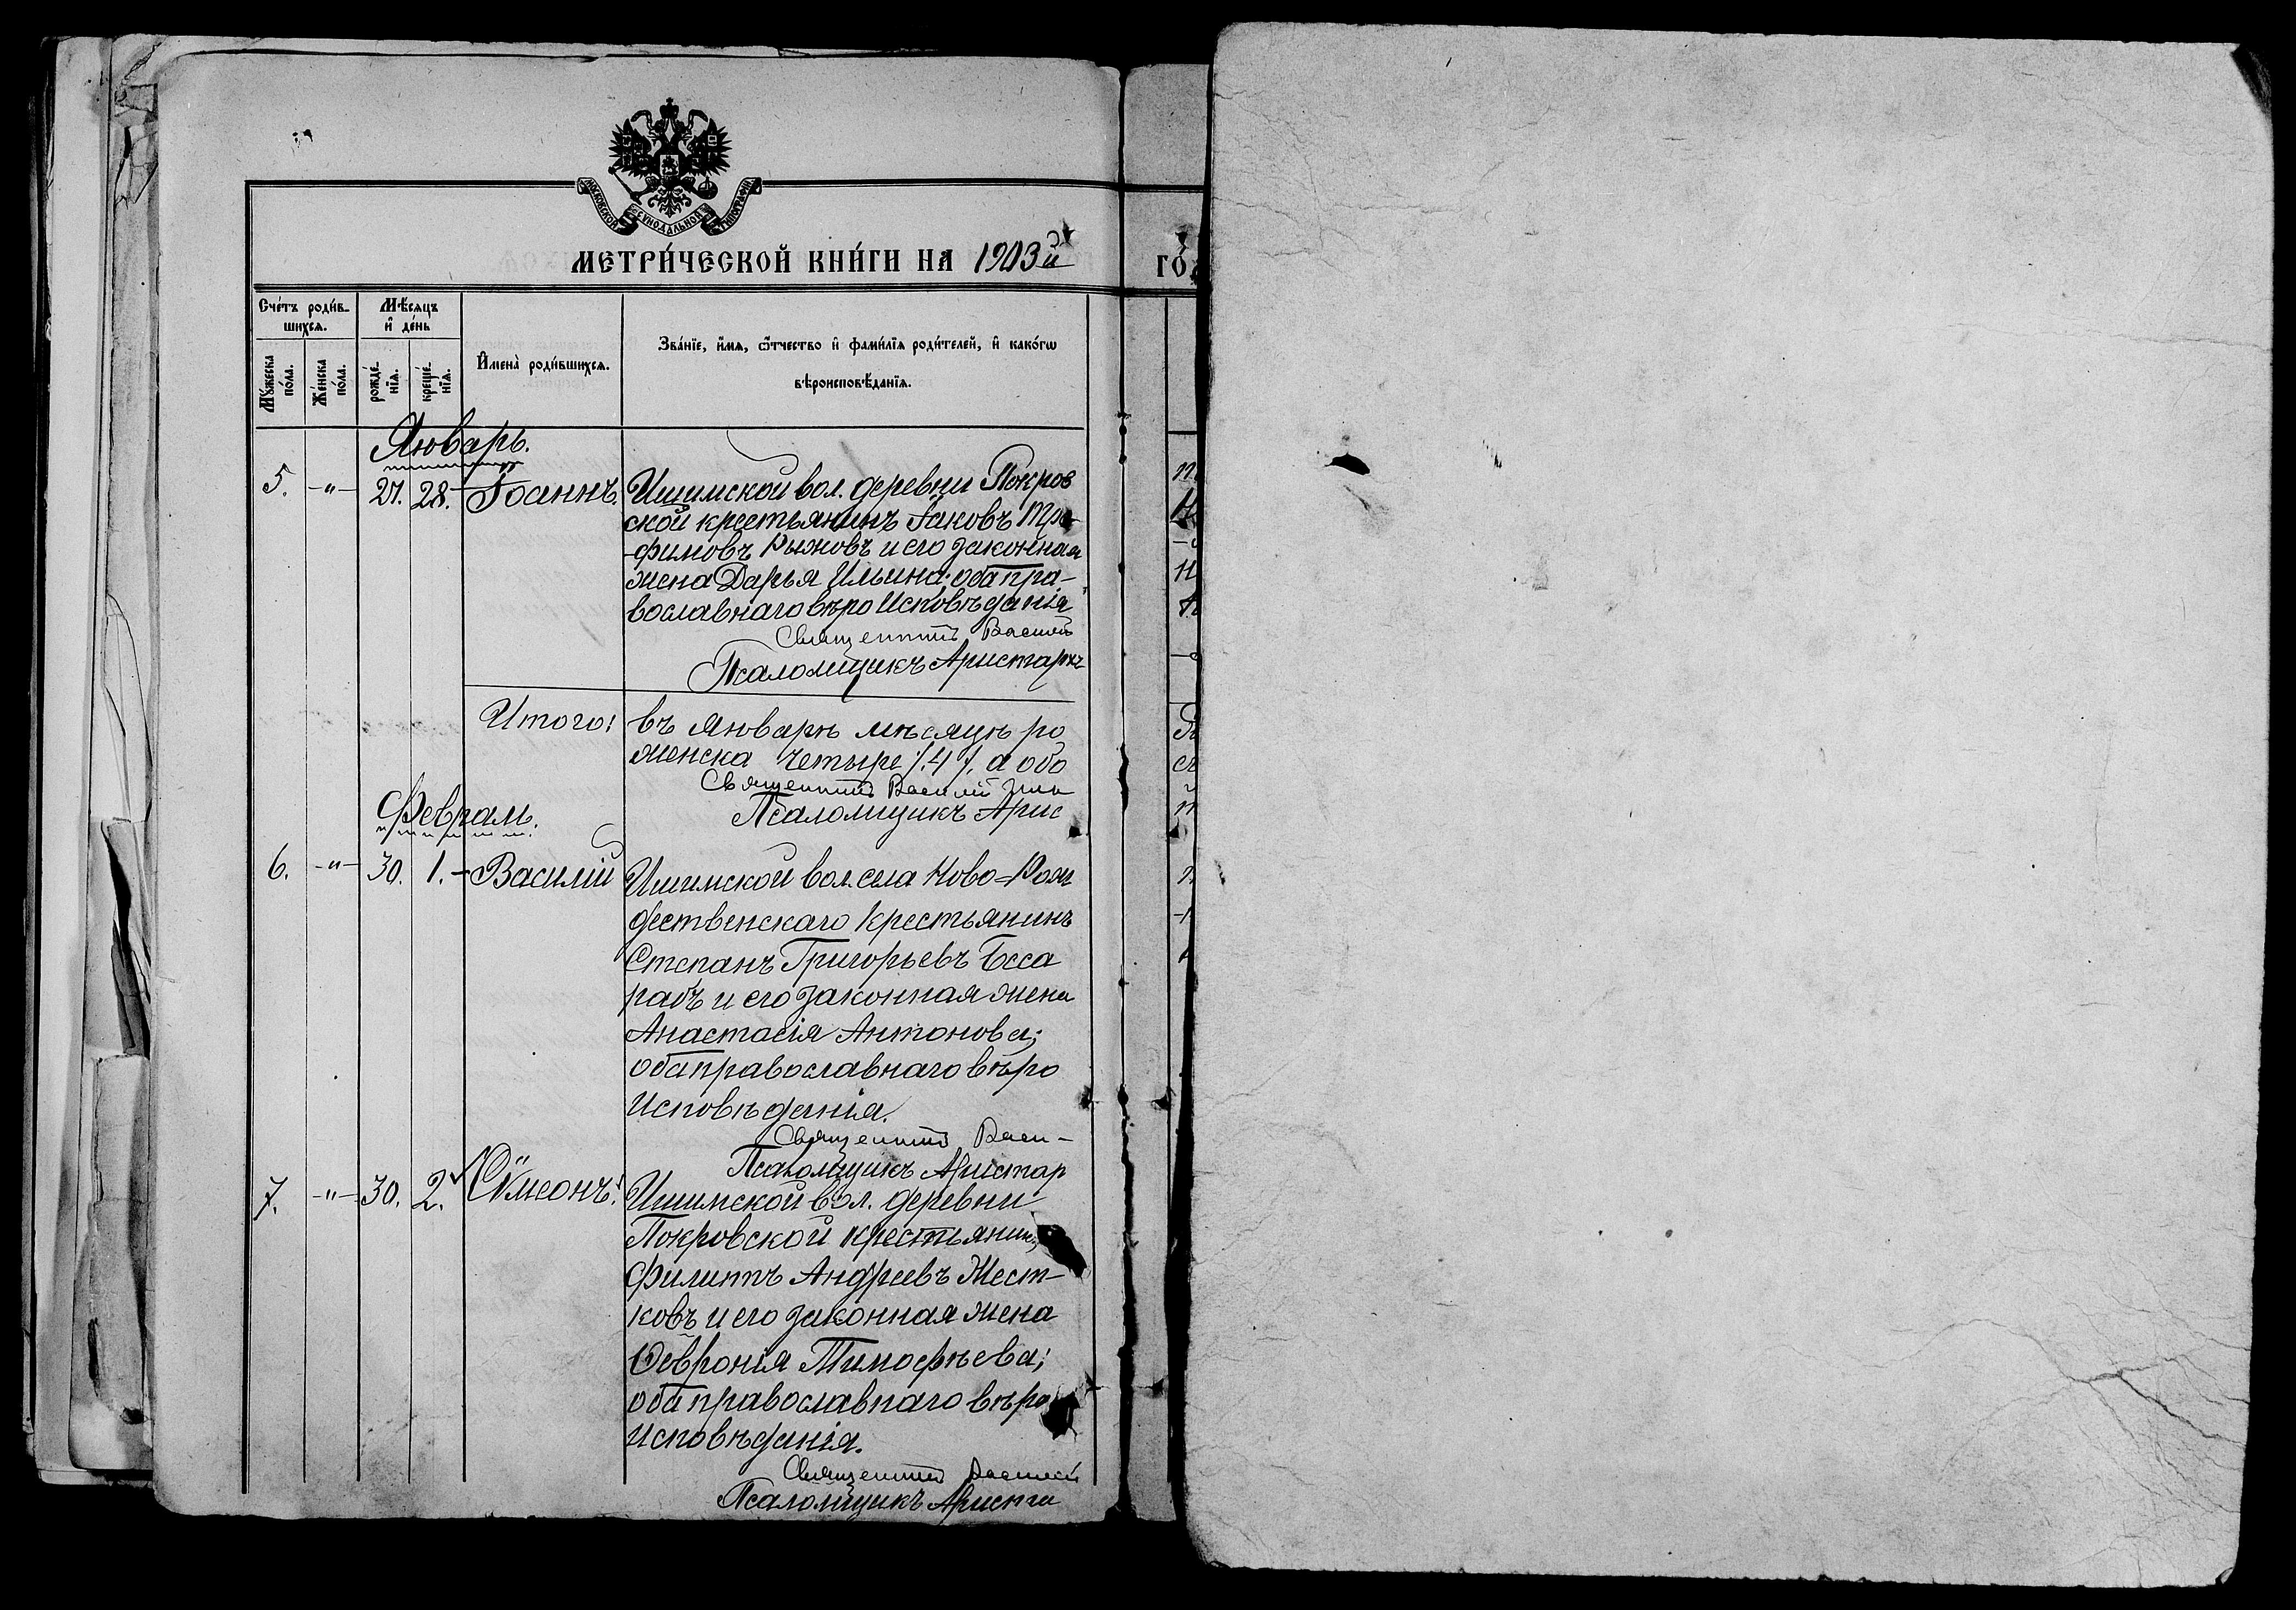 МОСКОВСКОЙ СѴНОДАЛЬНОЙ ТИПОГРАФІИ
МЕТРИ́ЧЕСКОЙ КНИ́ГИ НА 1903й
ГО
Сче́тъ роди́в-
шихсѧ.
Мѣ́сѧцъ
и҆ де́нь
Мꙋ́жеска
по́ла.
Же́нска
по́ла.
рожде́-
нїѧ.
креще́-
нїѧ.
И҆мена̀ роди́вшихсѧ.
Зва́нїе, и҆́мѧ, ѻ҆́тчество и҆ фами́лїѧ роди́телей, и҆ како́гѡ
вѣроисповѣ́данїѧ.
Январь.
5. -"- 27. 28. Іоаннъ.
Ишимской вол. деревни Покров
ской крестьянинъ Іаковъ Тро-
-фимовъ Рыжовъ и его законная
жена Дарья Ильина; оба пра-
вославнаго вѣроисповѣданія
Священникъ Василій
Псаломщикъ Аристархъ
Итого: въ Январѣ мѣсяцѣ ро
женска четыре /.4/. а обо
Священникъ Василій
Псаломщикъ Арис
Февраль.
6. -"- 30. 1. Василій
Ишимской вол. села Ново=Рож
дественскаго крестьянинъ
Степанъ Григорьевъ Бсса
рабъ и его законная жена
Анастасія Антонова;
оба православнаго вѣро
исповѣданія.
Священникъ Васи-
Псаломщикъ Аристар
7. -"- 30. 2. Сѵмеонъ.
Ишимской вол. деревни
Покровской крестьянинъ
Филиппъ Андреевъ Жест-
ковъ и его законная жена
Февронія Тимофѣева;
оба православнаго вѣро
исповѣданія.
Священникъ Василій
Псаломщикъ Ариста